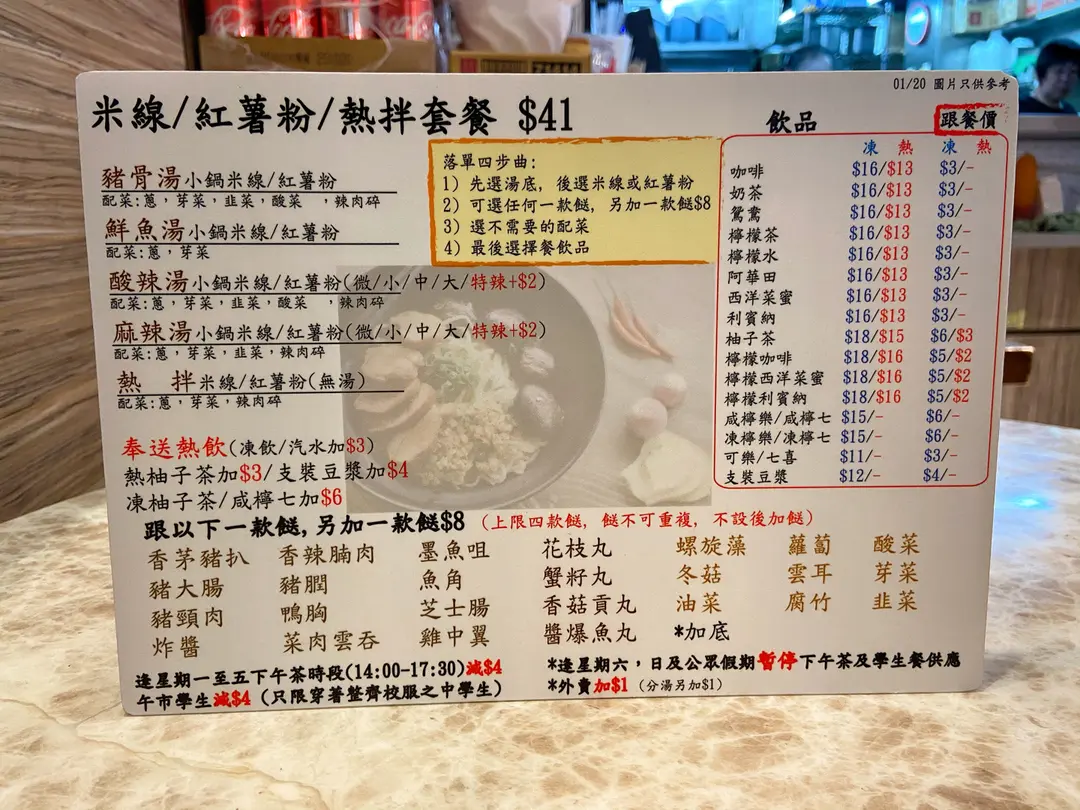 01/20 圖片只供參考
米線/紅薯粉/熱拌套餐 $41
豬骨湯小鍋米線/紅薯粉
配菜:蔥,芽菜,韭菜,酸菜 ,辣肉碎
鮮魚湯小鍋米線/紅薯粉
配菜:蔥,芽菜
酸辣湯小鍋米線/紅薯粉(微/小/中/大/特辣+$2)
配菜:蔥,芽菜,韭菜,酸菜 ,辣肉碎
麻辣湯小鍋米線/紅薯粉(微/小/中/大/特辣+$2)
配菜:蔥,芽菜,韭菜,辣肉碎
熱 拌米線/紅薯粉(無湯)
配菜:蔥,芽菜,辣肉碎
落單四步曲:
1) 先選湯底, 後選米線或紅薯粉
2) 可選任何一款餸, 另加一款餸$8
3) 選不需要的配菜
4) 最後選擇餐飲品
飲品 跟餐價
凍 熱 凍 熱
咖啡 $16/$13 $3/-
奶茶 $16/$13 $3/-
鴛鴦 $16/$13 $3/-
檸檬茶 $16/$13 $3/-
檸檬水 $16/$13 $3/-
阿華田 $16/$13 $3/-
西洋菜蜜 $16/$13 $3/-
利賓納 $16/$13 $3/-
柚子茶 $18/$15 $6/$3
檸檬咖啡 $18/$16 $5/$2
檸檬西洋菜蜜 $18/$16 $5/$2
檸檬利賓納 $18/$16 $5/$2
咸檸樂/咸檸七 $15/- $6/-
凍檸樂/凍檸七 $15/- $6/-
可樂/七喜 $11/- $3/-
支裝豆漿 $12/- $4/-
奉送熱飲(凍飲/汽水加$3)
熱柚子茶加$3/支裝豆漿加$4
凍柚子茶/咸檸七加$6
跟以下一款餸,另加一款餸$8 (上限四款餸, 餸不可重複, 不設後加餸)
香茅豬扒 香辣腩肉 墨魚咀 花枝丸 螺旋藻 蘿蔔 酸菜
豬大腸 豬膶 魚角 蟹籽丸 冬菇 雲耳 芽菜
豬頸肉 鴨胸 芝士腸 香菇貢丸 油菜 腐竹 韭菜
炸醬 菜肉雲吞 雞中翼 醬爆魚丸 *加底
逢星期一至五下午茶時段(14:00-17:30)減$4
午市學生減$4 (只限穿著整齊校服之中學生)
*逢星期六,日及公眾假期暫停下午茶及學生餐供應
*外賣加$1 (分湯另加$1)